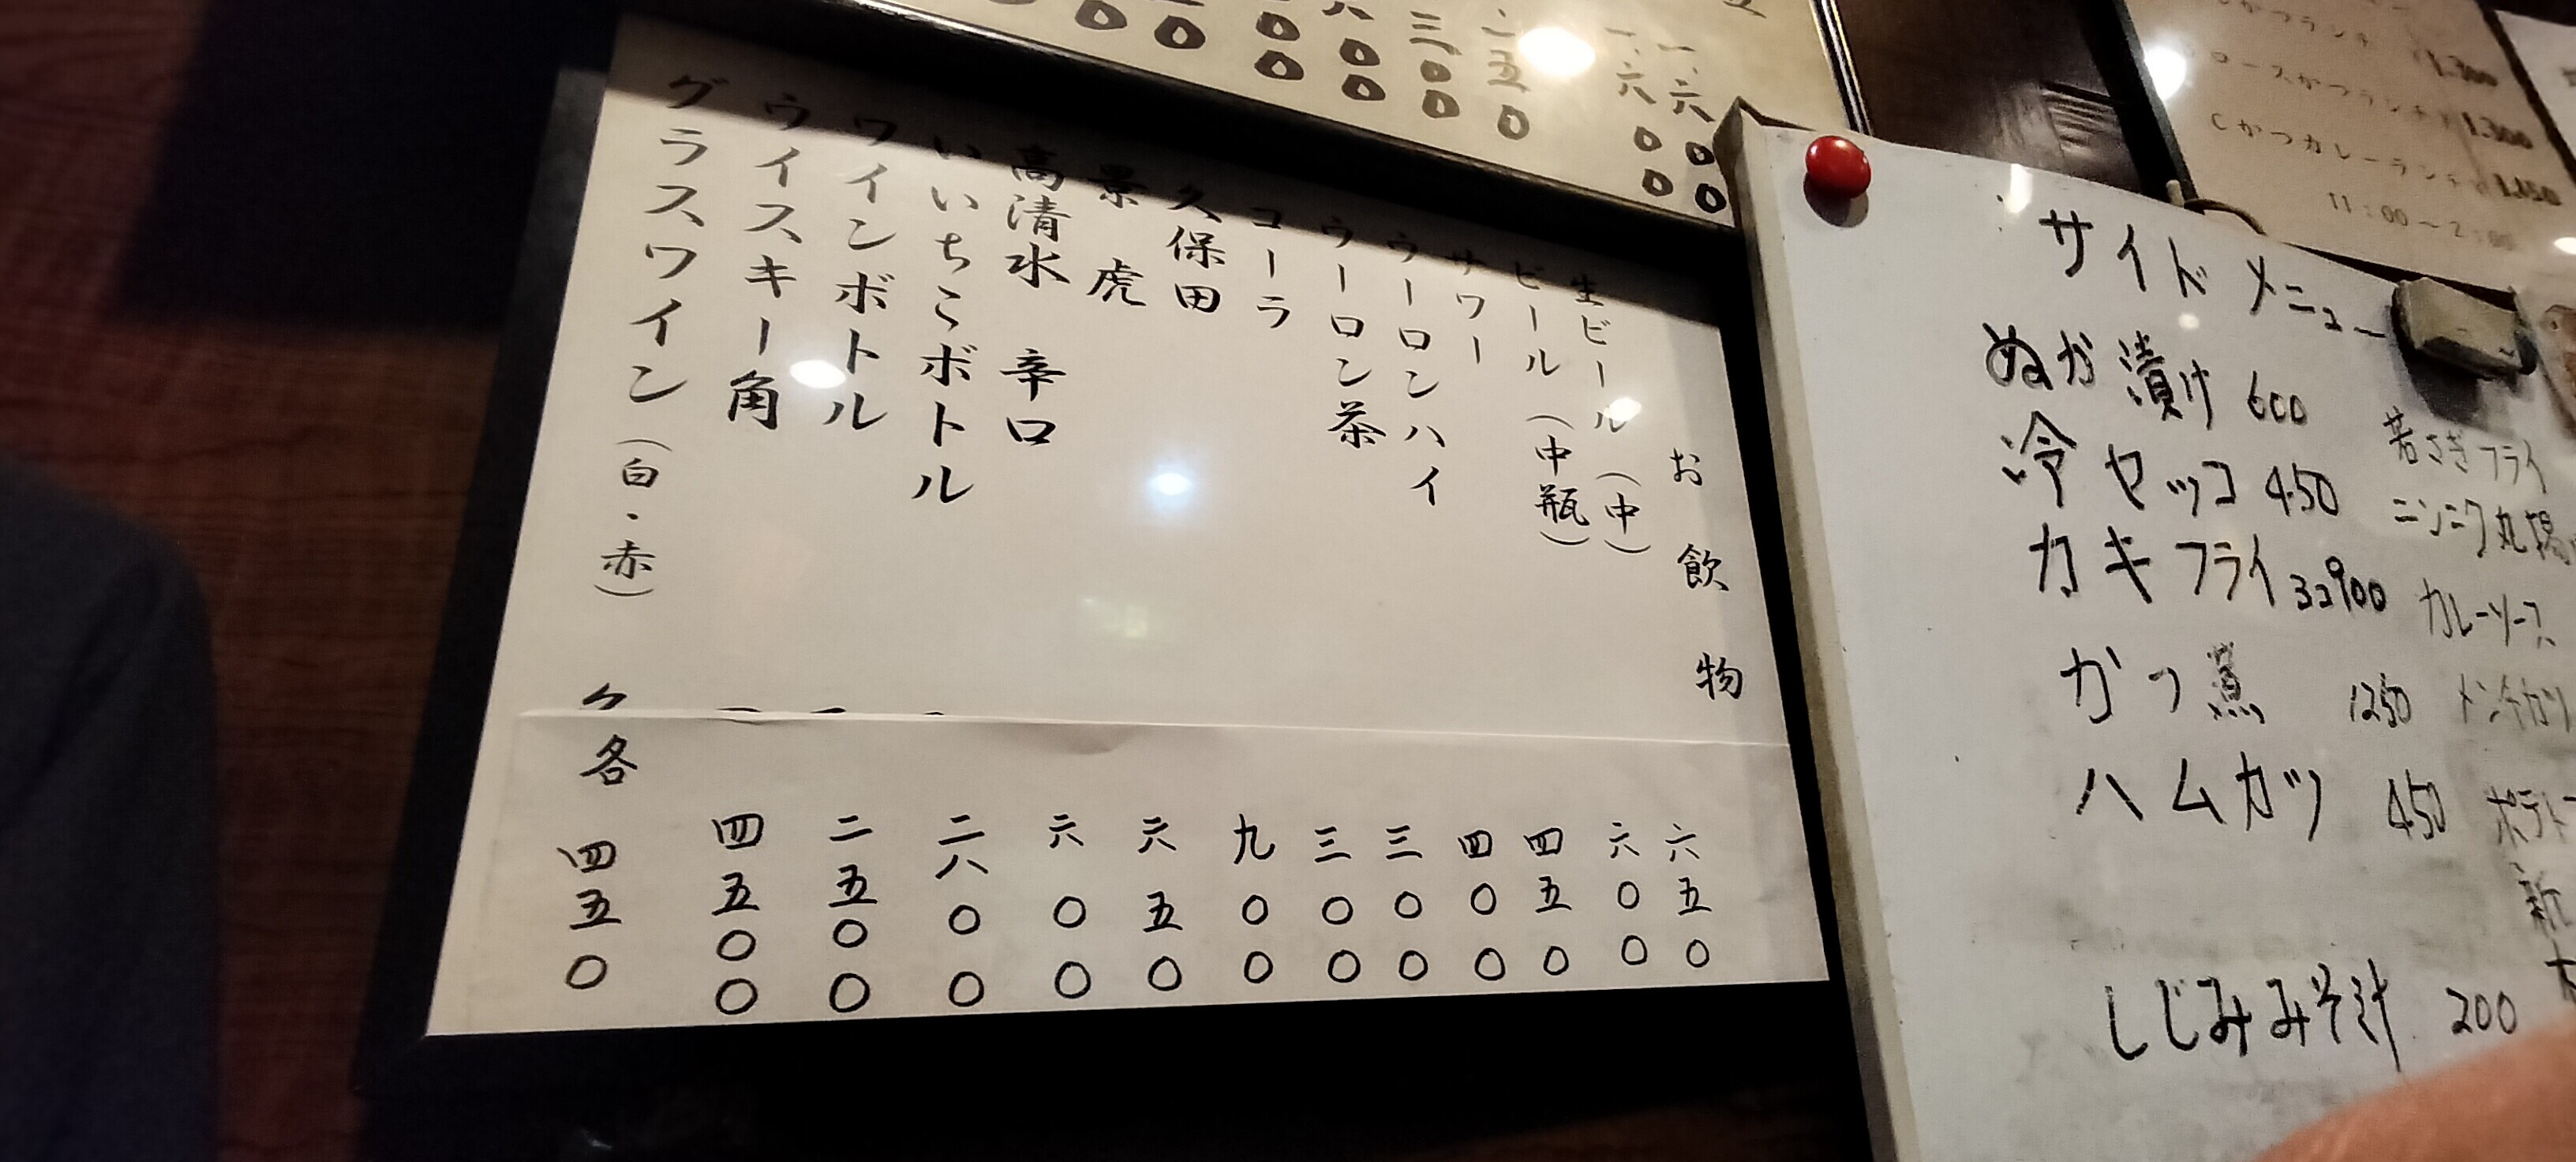 一、六〇〇
一、六〇〇
お飲物
生ビール（中） 六五〇
ビール（中瓶） 六〇〇
サワー 四五〇
ウーロンハイ 四〇〇
ウーロン茶 三〇〇
コーラ 三〇〇
久保田 九〇〇
景虎 六五〇
高清水 辛口 六〇〇
いいちこボトル 二八〇〇
ワインボトル 二五〇〇
ウイスキー角 四五〇〇
グラスワイン（白・赤） 各 四五〇
かつランチ 1,300
ロースかつランチ 1,300
Cかつカレーランチ
11:00～2:00
サイドメニュー
ぬか漬け 600
冷セッコ 450
カキフライ 900
かつ煮 1250
ハムカツ 450
しじみみそ汁 200
若さぎフライ
ニンニク丸揚
カレーソース
メンチカツ
ポテト
新